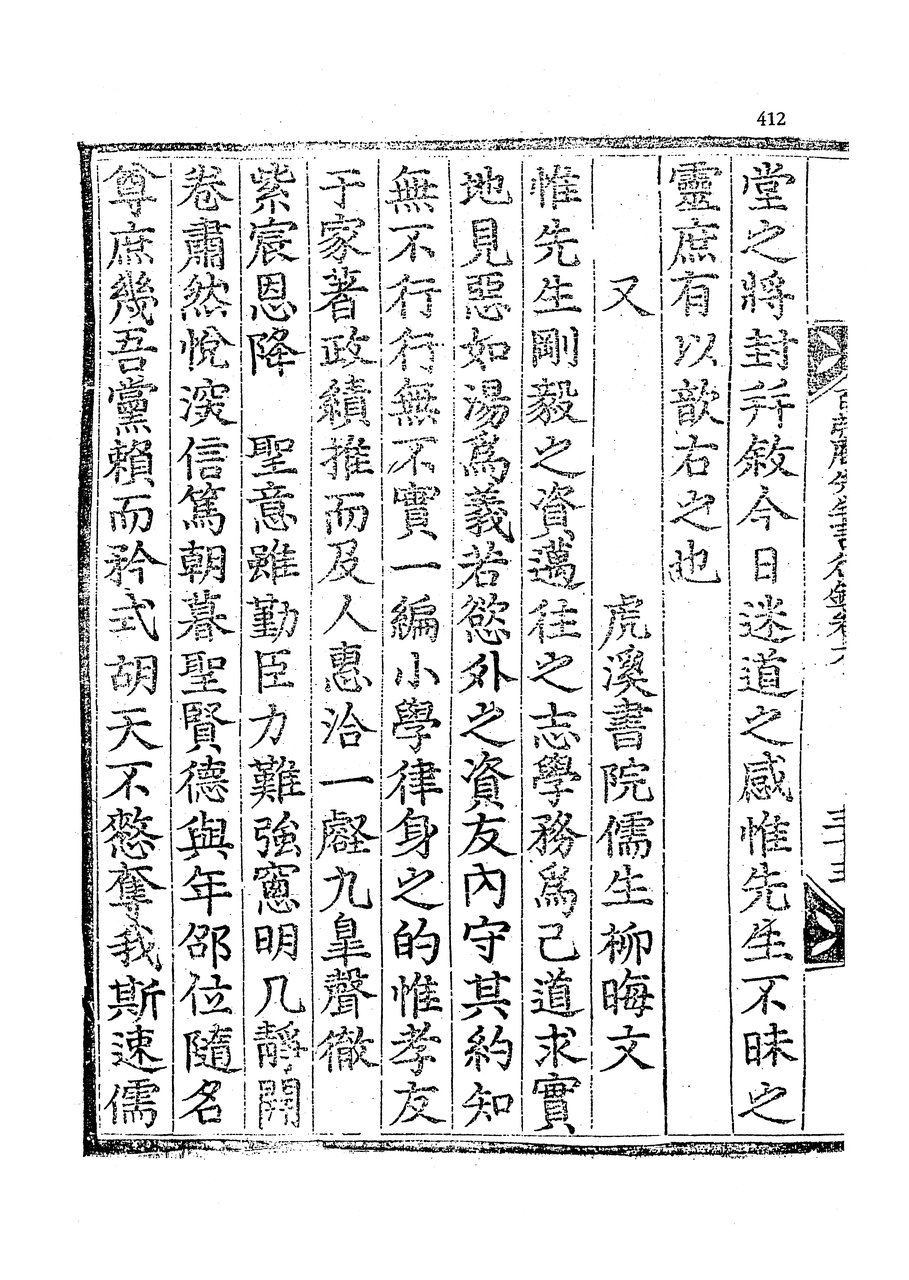 412
堂之將封幷敘今日迷道之感惟先生不昧之
靈庶有以歆右之也
又 虎溪書院儒生柳晦文
惟先生剛毅之資邁往之志學務爲己道求實
地見惡如湯爲義若慾外之資友內守其約知
無不行行無不實一編小學律身之的惟孝友
于家著政績推而及人惠洽一壑九臯聲徹
紫宸恩降 聖意雖勤臣力難強窓明几靜開
卷肅然悅深信篤朝暮聖賢德與年卲位隨名
尊庶幾吾黨賴而矜式胡天不憖奪我斯速儒